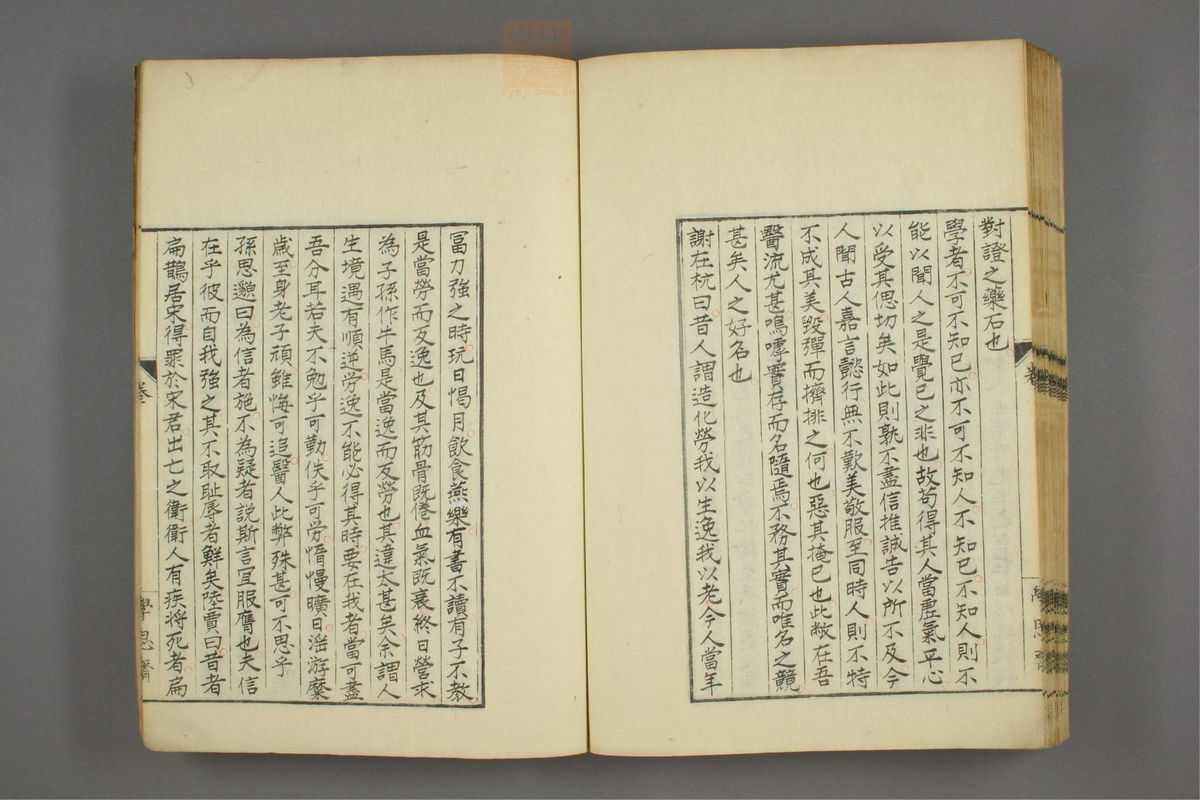 對證之藥石也
學者不可不知已亦不可不知人不知已不知人則不
能以聞人之是覺已之非也故苟得其人當虛氣平心
以受其偲切矣如此則孰不盡信推誠告以所不及今
人聞古人嘉言懿行無不歎美敬服至同時人則不特
不成其美毀彈而擠排之何也惡其掩已也此敝在吾
醫流尤甚嗚嘑實存而名隨焉不務其實而唯名之競
甚矣人之好名也
謝在杭曰昔人謂造化勞我以生逸我以老今人當年
富力強之時玩日愒月飲食燕樂有書不讀有子不教
是當勞而反逸也及其筋骨既倦血氣既衰終日營求
為子孫作牛馬是當逸而反勞也其違大甚矣余謂人
生境遇有順逆勞逸不能必得其時要在我者當可盡
吾分耳若夫不勉乎可勤佚乎可勞惰慢曠日滛游糜
歲至身老子頑雖悔可追醫人此弊殊甚可不思乎
孫思邈曰為信者施不為疑者說斯言宜服膺也夫信
在乎彼而自我強之其不取耻辱者鮮矣陸賈曰昔者
扁鵲居宋得罪於宋君出亡之衛衛人有疾將死者扁
卷
學思齋
zysj.com.cn